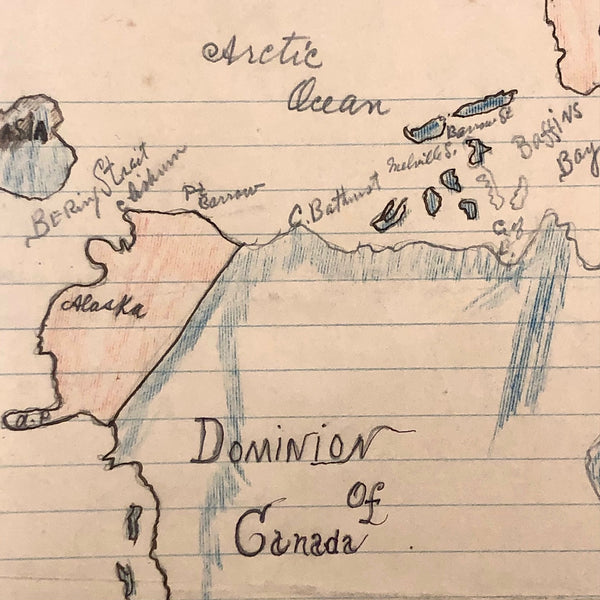 Arctic
Ocean
Barrow St
Melville S.
Baffins
Bay
ASIA
Bering Strait
Pt
Barrow
C. Bathurst
Alaska
Dominion
Of
Canada